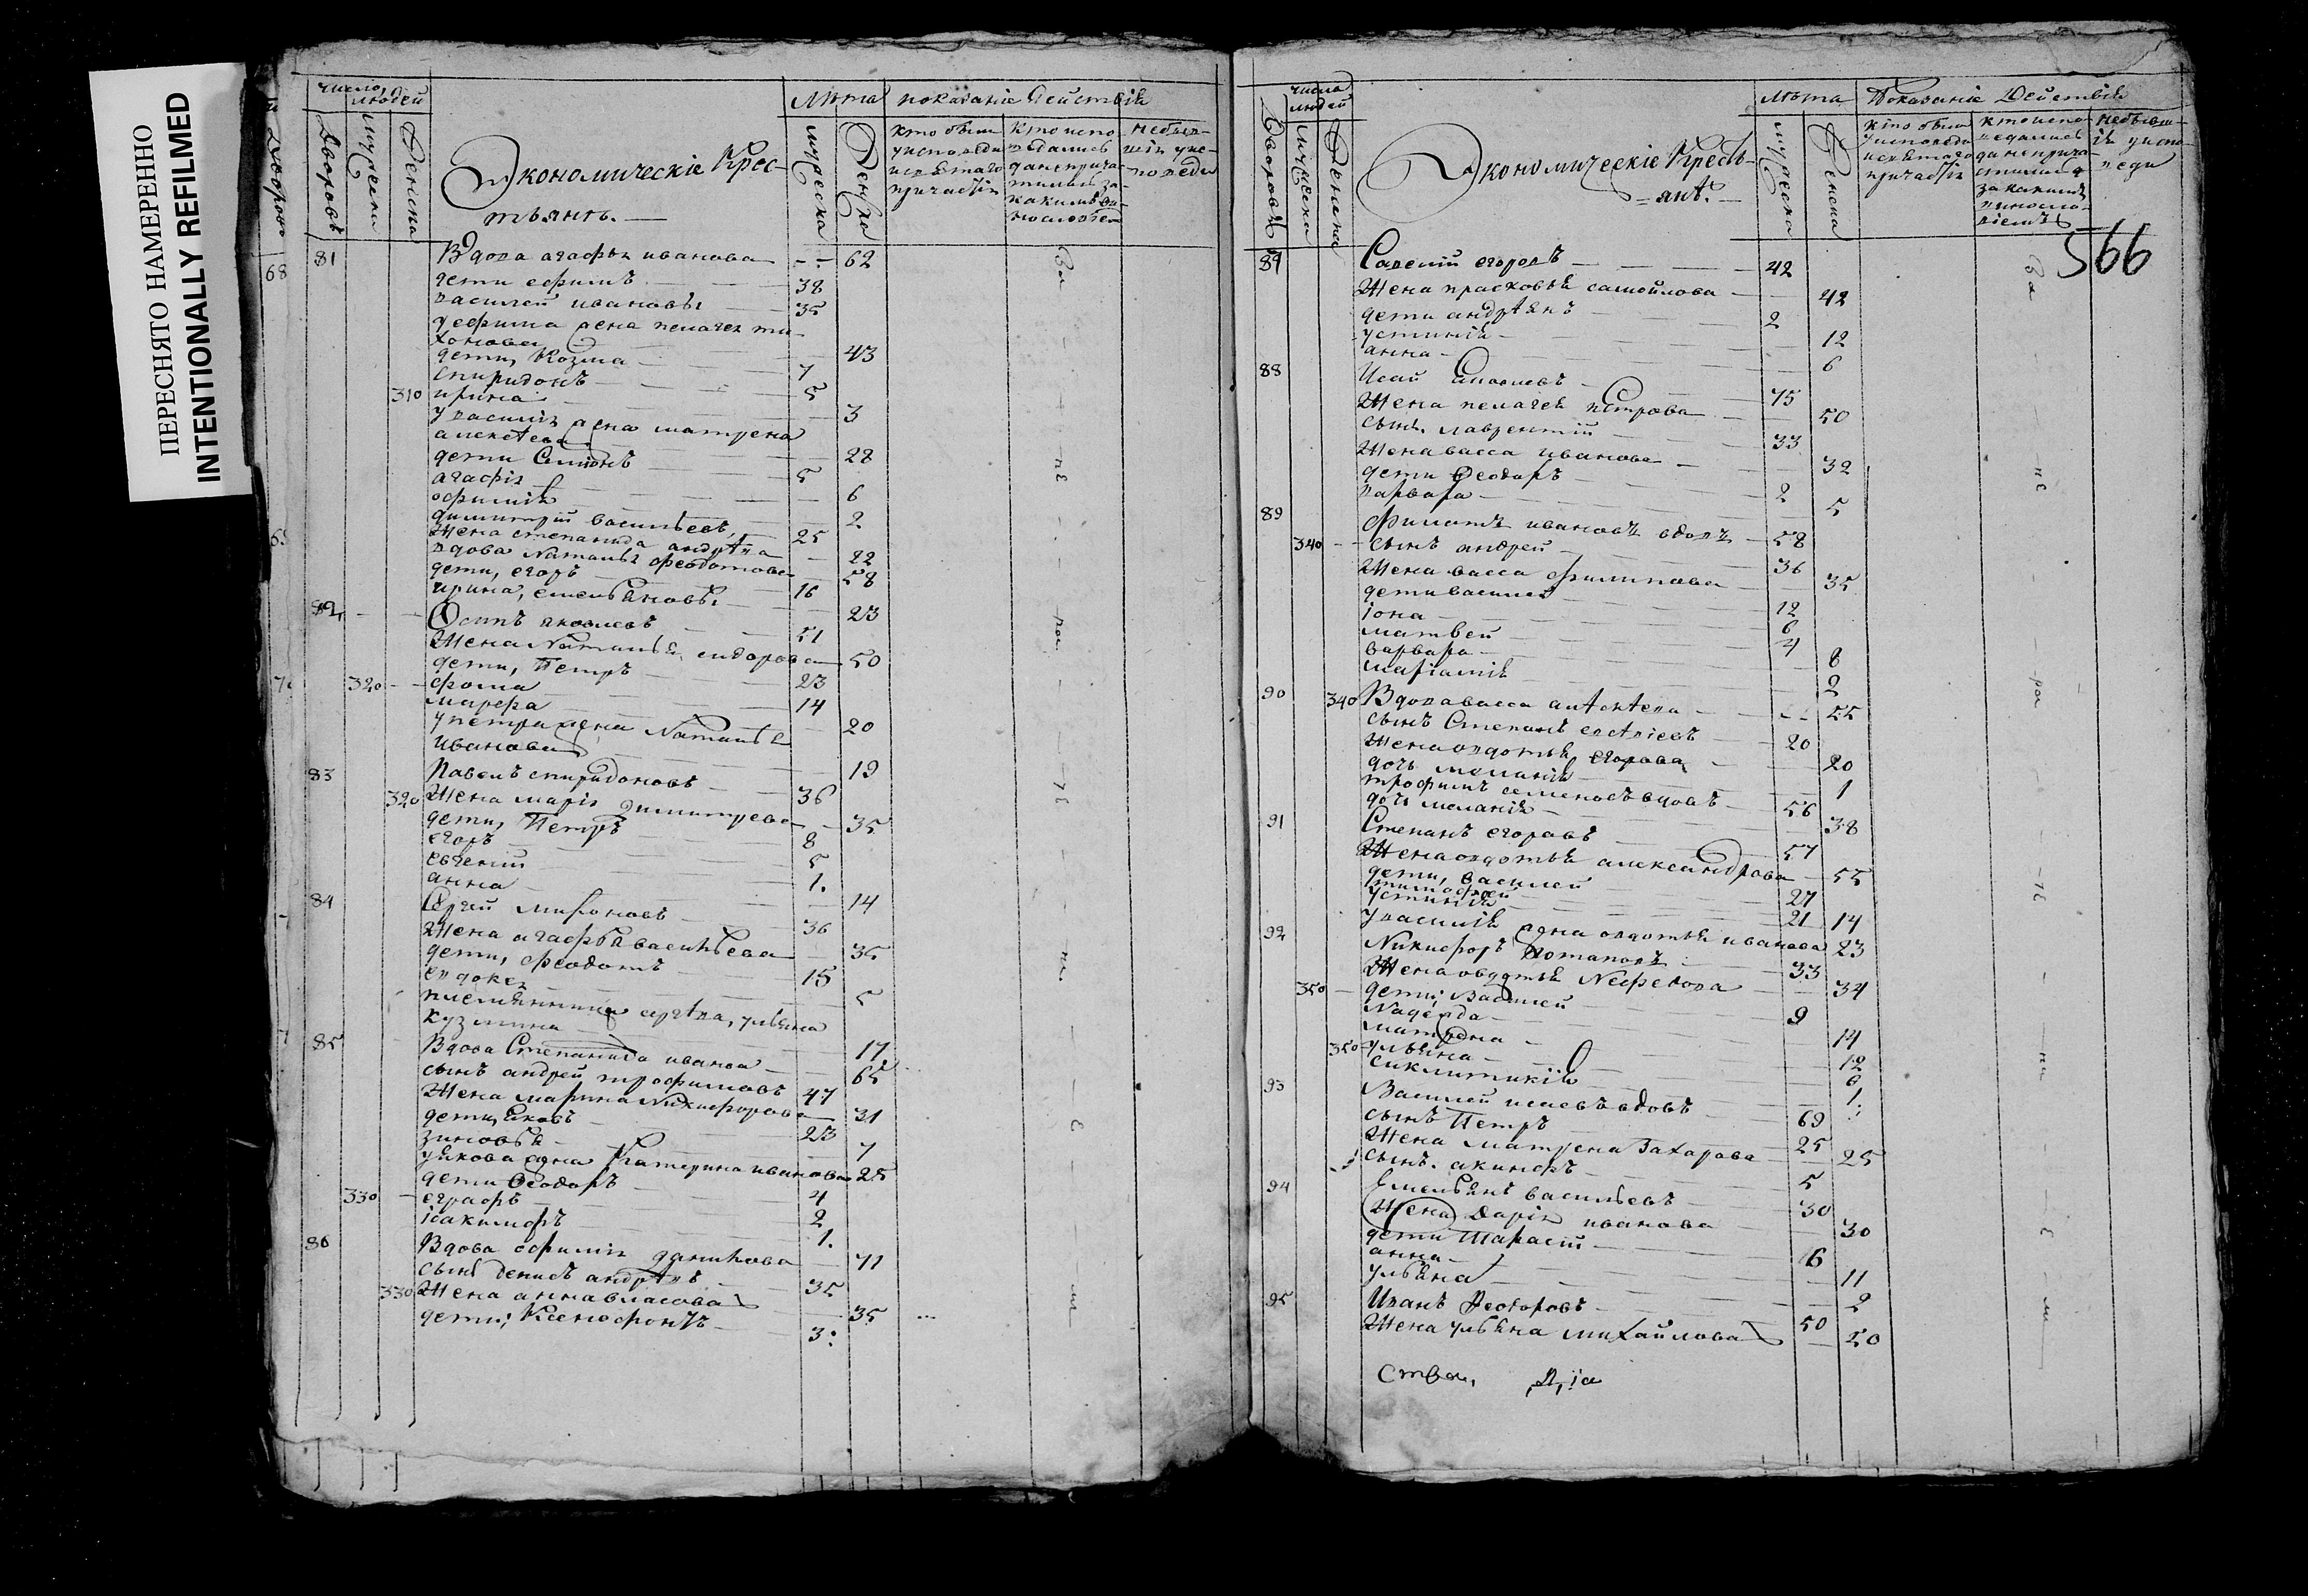 ПЕРЕСНЯТО НАМЕРЕННО
INTENTIONALLY REFILMED
число людей
Дворовъ
мужеска
Женска
Экономическіе Крес-
тьянъ.
лѣта
мужеска
Женска
показаніе Действія
кто были
у исповеди
и святаго
причастія
кто испо-
ведались
а не прича-
тились за
какимъ ви-
нословіем
небыв-
шія у ис-
поведи
68 81 Вдова агафья иванова 62
дети ефимъ 38
василей ивановы 35
у ефима жена пелагея ти-
хонова 43
дети, Козма 7
спиридонъ 5
310 ирина 3
у василія жена матрена
алексѣева 28
дети Симионъ 5
агафія 6
офимія 2
димитрій васильевъ, 25
Жена степанида андрѣва 22
вдова Наталья феодотова 58
дети, егоръ 16
ирина, емельяновы 23
82 Осипъ яковлевъ 51
Жена Наталья, сидорова 50
дети, Петръ 23
320 фома 14
марфа 20
у петра жена Наталья
Иванова 19
83 Павелъ спиридоновъ 36
320 Жена марія димитрева 35
дети, Петръ 8
егоръ 5
евгений 1.
анна 14
84 Сергей мироновъ 36
Жена агафья васильева 35
дети, феодотъ 15
евдокея 5
племянница сергѣва, ульяна
кузмина 17
85 Вдова Степанида иванова 65
сынъ андрей трофимовъ 47
Жена марина Никифорова 31
дети, яковъ 23
зиновья 7
у якова жена Катерина иванова 25
дети Феодоръ 4
330 еграфъ 2
іоакимфъ 1.
86 Вдова офимія данилова 71
сынъ денисъ андрѣвъ 35
330 Жена анна власова 35
дети; Ксенофонтъ 3:
числа людей
Дворовъ
Мужеска
Женска
Экономическіе Кресть-
янъ.
лѣта
мужеска
женска
Показаніе Действія
кто были
у исповеди
и святаго
причастія
кто испо-
ведались
а не прича-
стились
за какимъ
виносло-
віемъ
небывш-
ія у испо-
веди
566
87 Савелий егоровъ 42
Жена прасковья самойлова 42
дети андрѣянъ 2
устинія 12
анна 6
88 Исай яковлевъ 75
Жена пелагея петрова 50
сынъ. лаврентій 33
Жена васса иванова 32
дети Феодоръ 2
варвара 5
89 филатъ ивановъ вдовъ 58
340 сынъ андрей 36
Жена васса филипова 35
дети василей 12
іона 6
матвей 4
варвара 8
маріамія 2
90 340 Вдова васса алѣксѣева 55
сынъ Степанъ 20
Жена авдотья егорова 20
дочь меланія 1
трофимъ семеновъ вдовъ 56
дочь меланія 38
91 Степанъ егоровъ 57
Жена авдотья александрова 55
дети, василей 27
тимофей 21
устинія 14
у василія жена авдотья иванова 23
92 Никифоръ Потаповъ 33
Жена авдотья Нефедова 34
350 дети; Василей 9
Надежда 14
матрена 12
350 ульяна 6
сиклитикія 1
93 Василей исаевъ вдовъ 69
сынъ Петръ 25
Жена матрена Захарова 25
сынъ. акинфъ 5
94 Емельянъ васильевъ 30
Жена дарія иванова 30
дети Тарасій 6
анна 11
ульяна 2
95 Иванъ Феодоровъ 50
Жена ульяна михайлова 50